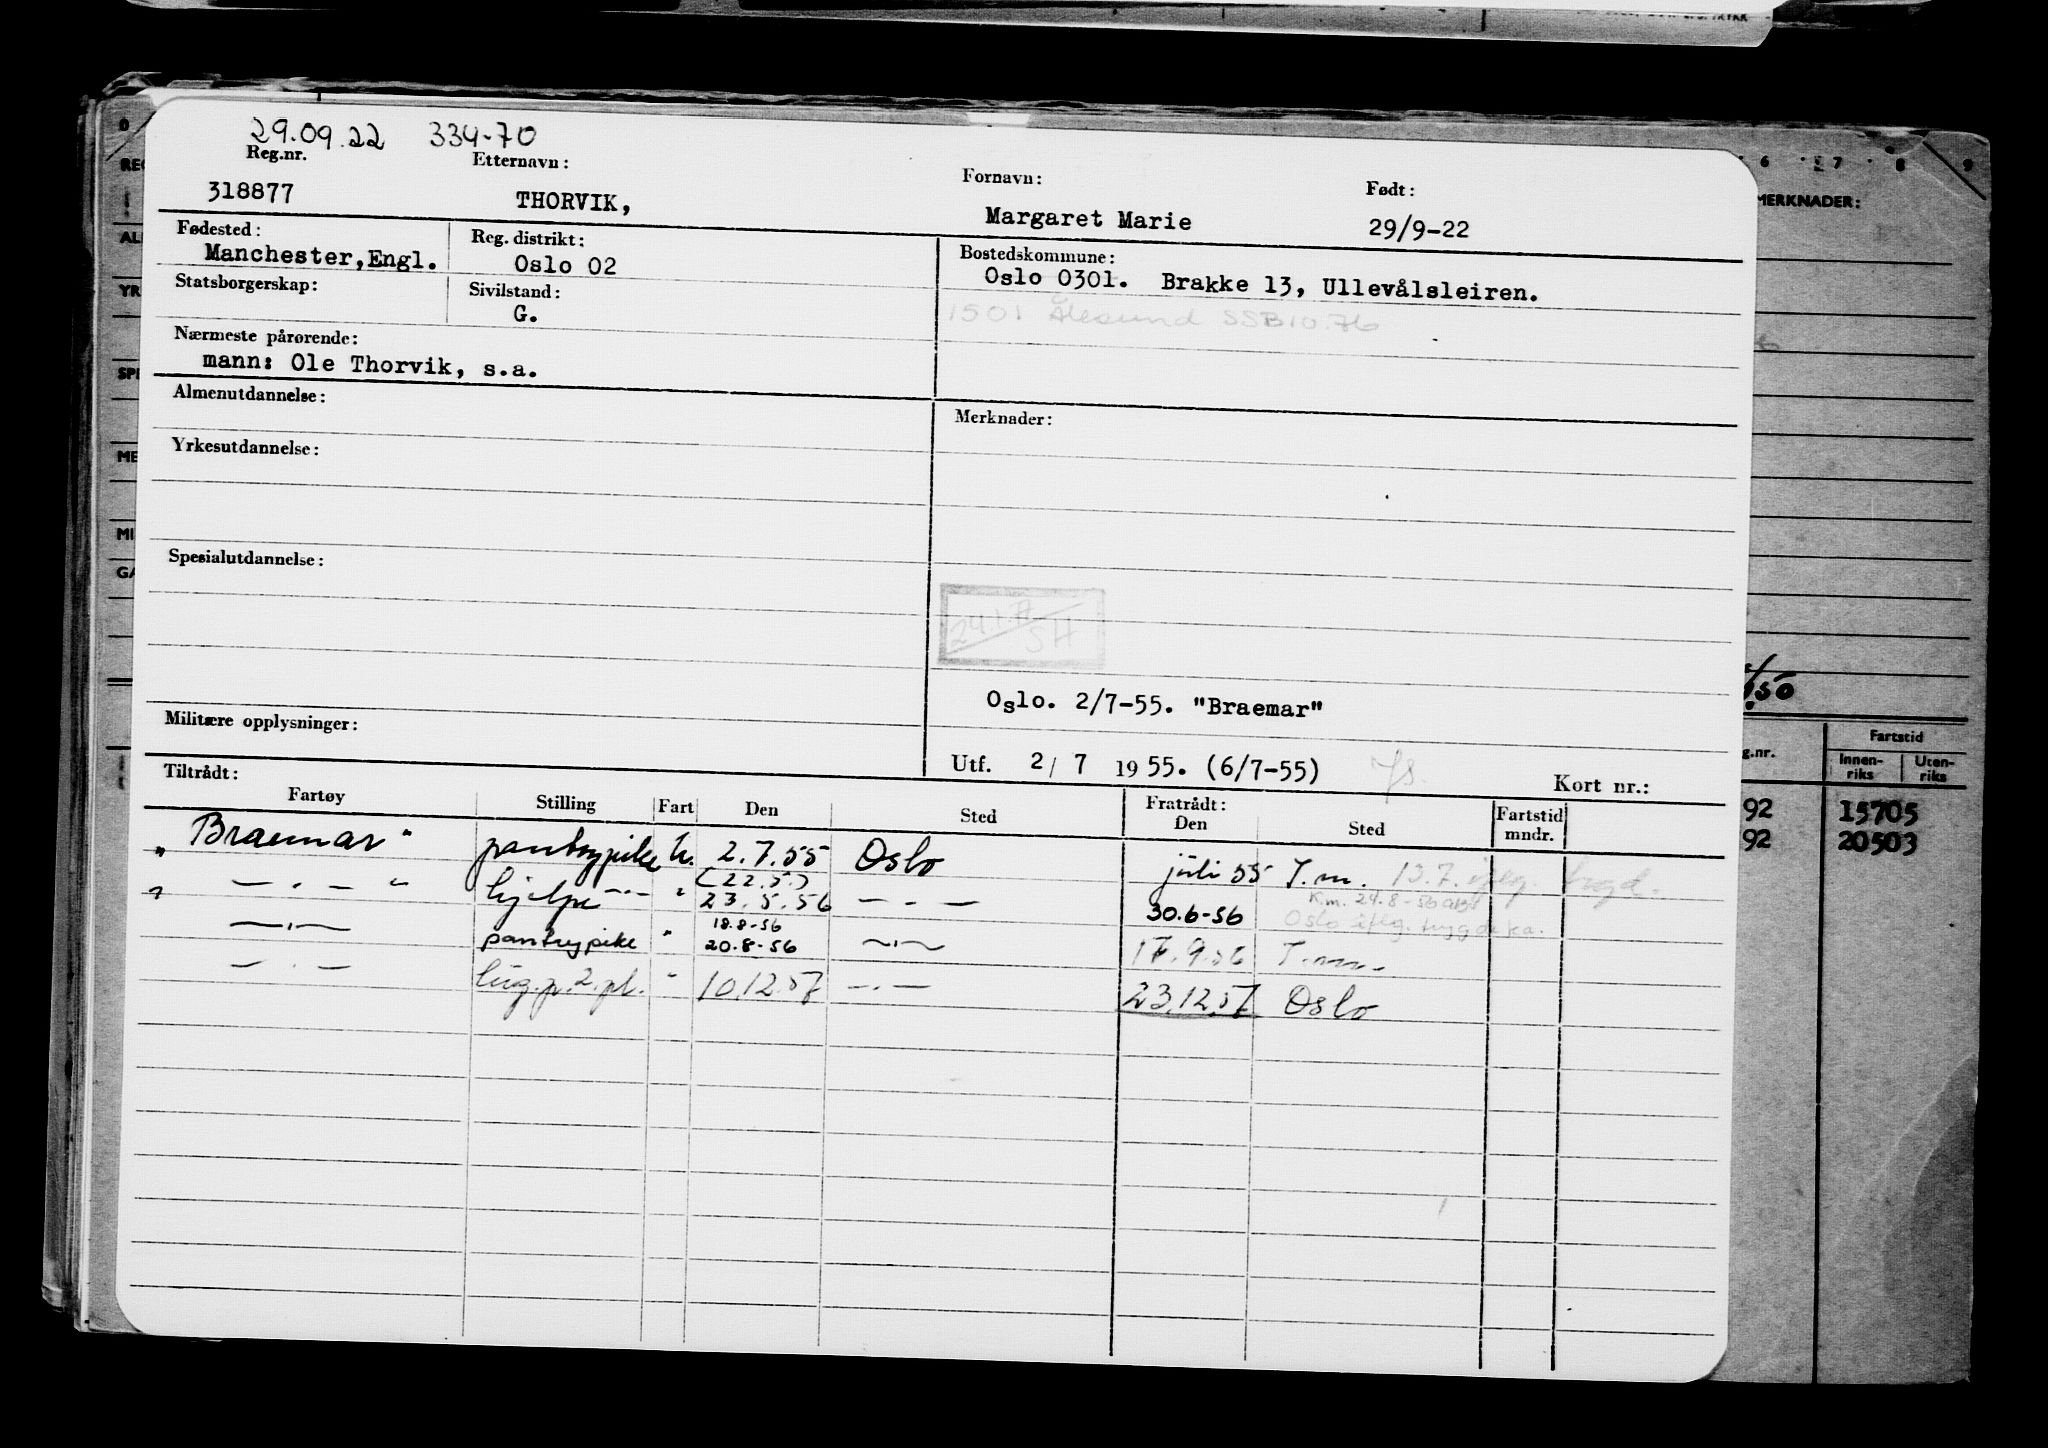 29.09.22 334-70
Reg.nr. Etternavn: Fornavn: Født:
318877 THORVIK, Margaret Marie 29/9-22
Fødested: Reg. distrikt: Bostedskommune:
Manchester,Engl. Oslo 02 Oslo 0301. Brakke 13, Ullevålsleiren.
Statsborgerskap: Sivilstand: 1501 Ålesund SSB 10.76
G.
Nærmeste pårørende:
mann: Ole Thorvik, s.a.
Almenutdannelse: Merknader:
Yrkesutdannelse:
Spesialutdannelse:
Oslo. 2/7-55. "Braemar"
Militære opplysninger:
Utf. 2/ 7 1955. (6/7-55)
Kort nr.:
Tiltrådt: Fratrådt:
Fartøy Stilling Fart Den Sted Den Sted Fartstid mndr.
" Braemar " pantrypike u. 2.7.55 Oslo juli 55 T.m. 13.7. iflg. trygd.
(22.5.)
" — . — " hjelpe —"— " 23.5.56 — . — 30.6-56 K.m. 29.8-56
Oslo iflg. trygdeka.
18.8-56
— . — pantrypike " 20.8-56 — . — 17.9.56 T.m.
— . — lug.p.2.pl. " 10.12.57 — . — 23.12.57 Oslo
6 7 8 9
MERKNADER:
50
g.nr. Fartstid
Innenriks Utenriks
92 15705
92 20503